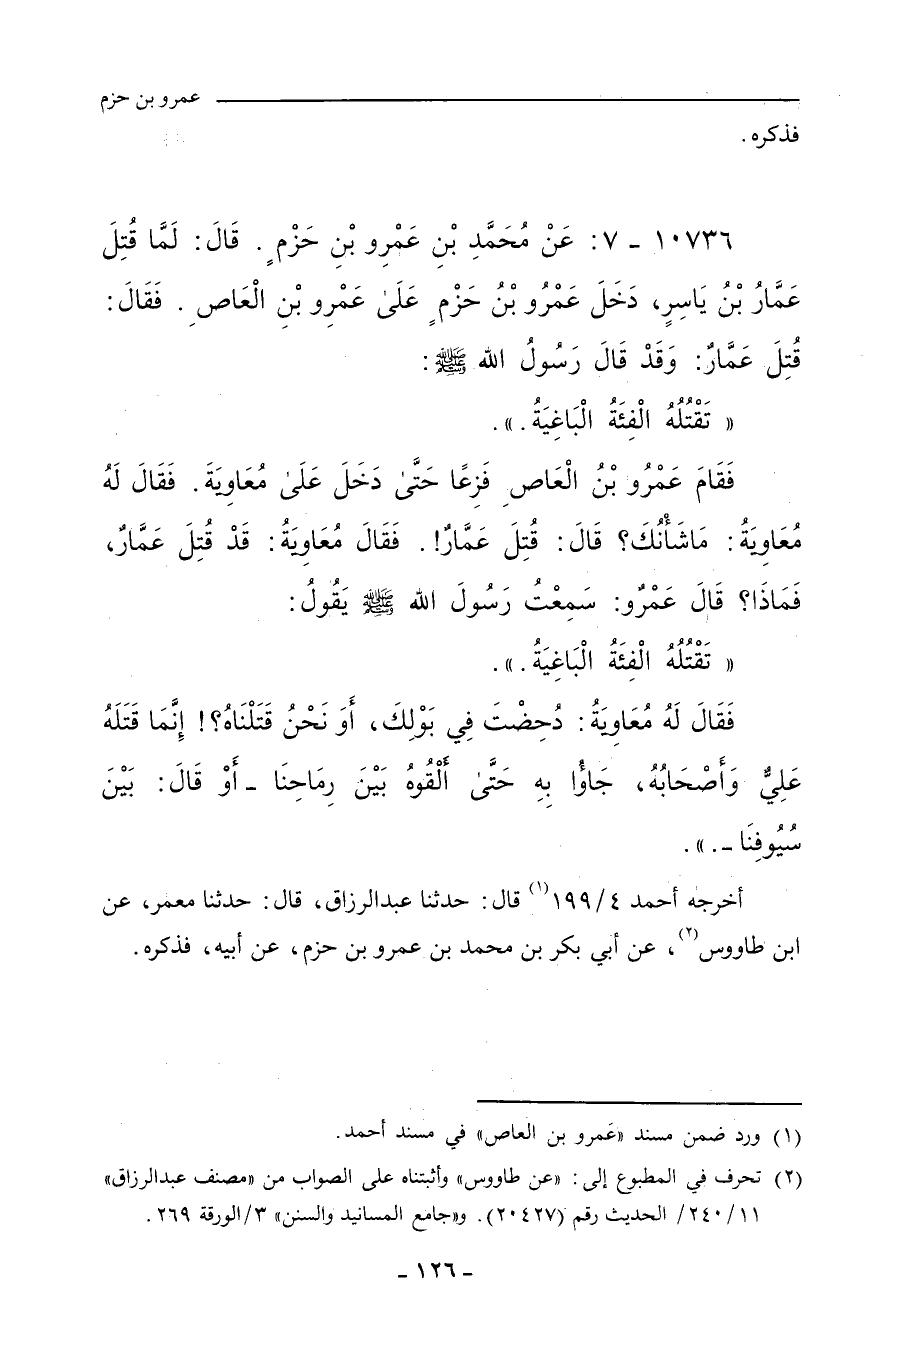 عمرو بن حزم
فذكره .
١٠٧٣٦ - ٧: عَنْ مُحَمَّدِ بْنِ عَمْرِو بْنِ حَزْمٍ . قَالَ: لَمَّا قُتِلَ
عَمَّارُ بْنُ يَاسِرٍ، دَخَلَ عَمْرُو بْنُ حَزْمٍ عَلَىٰ عَمْرِو بْنِ الْعَاصِ . فَقَالَ:
قُتِلَ عَمَّارٌ: وَقَدْ قَالَ رَسُولُ الله ﷺ:
« تَقْتُلُهُ الْفِئَةُ الْبَاغِيَةُ . ».
فَقَامَ عَمْرُو بْنُ الْعَاصِ فَزِعًا حَتَّىٰ دَخَلَ عَلَىٰ مُعَاوِيَةَ . فَقَالَ لَهُ
مُعَاوِيَةُ: مَاشَأْنُكَ؟ قَالَ: قُتِلَ عَمَّارٌ! . فَقَالَ مُعَاوِيَةُ: قَدْ قُتِلَ عَمَّارٌ،
فَمَاذَا؟ قَالَ عَمْرٌو: سَمِعْتُ رَسُولَ الله ﷺ يَقُولُ:
« تَقْتُلُهُ الْفِئَةُ الْبَاغِيَةُ . ».
فَقَالَ لَهُ مُعَاوِيَةُ: دُحِضْتَ فِي بَوْلِكَ، أَوَ نَحْنُ قَتَلْنَاهُ؟! إِنَّمَا قَتَلَهُ
عَلِيٌّ وَأَصْحَابُهُ، جَاؤُا بِهِ حَتَّىٰ أَلْقَوْهُ بَيْنَ رِمَاحِنَا - أَوْ قَالَ: بَيْنَ
سُيُوفِنَا -. ».
أخرجه أحمد ٤/ ١٩٩(١) قال: حدثنا عبدالرزاق، قال: حدثنا معمر، عن
ابن طاووس(٢)، عن أبي بكر بن محمد بن عمرو بن حزم، عن أبيه، فذكره.
(١) ورد ضمن مسند «عَمرو بن العاص» في مسند أحمد.
(٢) تحرف في المطبوع إلى: «عن طاووس» وأثبتناه على الصواب من «مصنف عبدالرزاق»
١١/ ٢٤٠/ الحديث رقم (٢٠٤٢٧). و«جامع المسانيد والسنن» ٣/الورقة ٢٦٩.
- ١٢٦ -